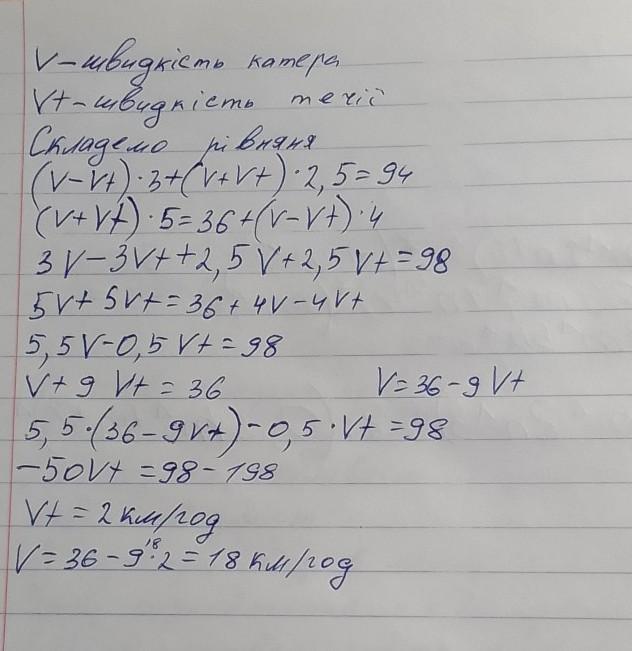 V-швидкість катера
Vt-швидкість течії
Складемо рівняня
(V-Vt)·3+(V+Vt)·2,5=94
(V+Vt)·5=36+(V-Vt)·4
3V-3Vt+2,5V+2,5Vt=98
5V+5Vt=36+4V-4Vt
5,5V-0,5Vt=98
V+9Vt=36 V=36-9Vt
5,5·(36-9Vt)-0,5·Vt=98
-50Vt=98-198
Vt=2км/год
18
V=36-9·2=18км/год